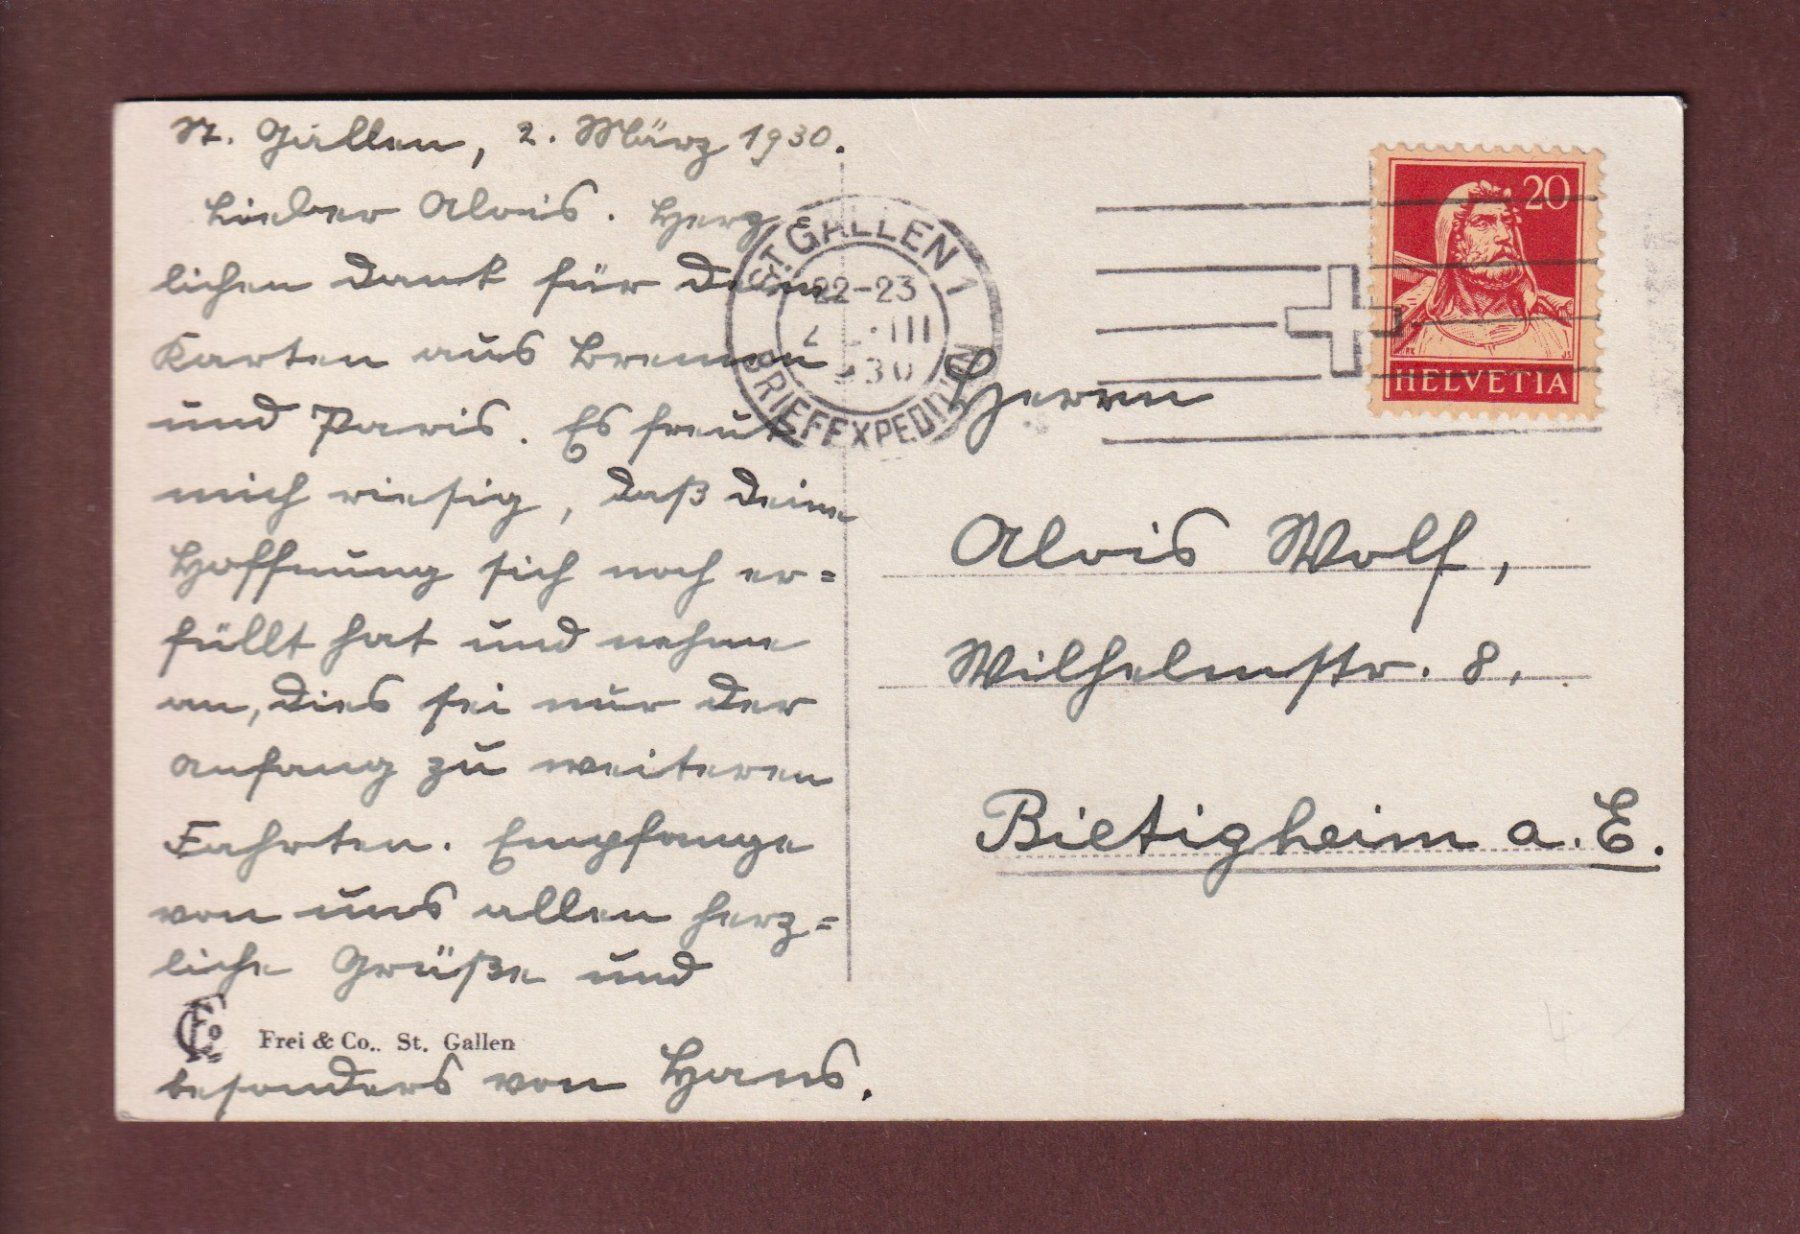 St. Gallen, 2. März 1930.
Lieber Alois. Herz
lichen Dank für Dein
Karten aus Bremen
und Paris. Es freut
mich riesig, daß Deine
Hoffnung sich noch er=
füllt hat und nehme
an, dies sei nur der
Anfang zu weiteren
Fahrten. Empfange
von uns allen herz=
liche Grüße und
Frei & Co.. St. Gallen
besonders von Hans.
ST. GALLEN 1
22-23
2. III
30
BRIEFEXPEDITION
20
HELVETIA
Herrn
Alois Wolf,
Wilhelmstr. 8,
Bietigheim a. E.